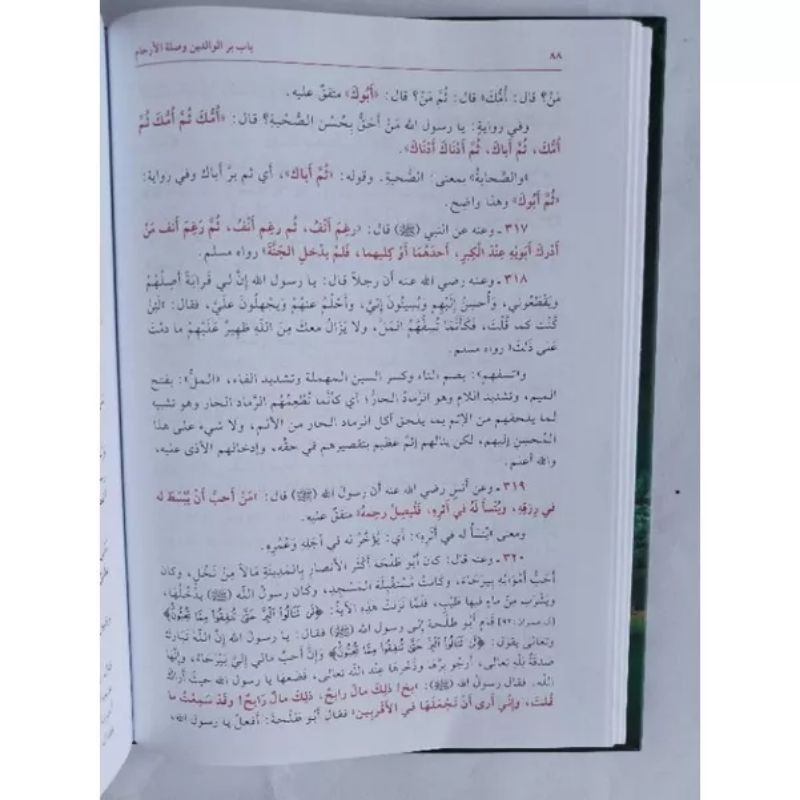 ٨٨
باب بر الوالدين وصلة الأرحام
مَنْ؟ قال: أُمُّكَ» قال: ثُمَّ مَنْ؟ قال: «أَبُوكَ» متفقٌ عليه.
وفي رواية: يا رسول الله مَنْ أَحَقُّ بِحُسْنِ الصُّحْبَةِ؟ قال: «أُمُّكَ ثُمَّ أُمُّكَ ثُمَّ
أُمُّكَ، ثُمَّ أَباكَ، ثُمَّ أَدْنَاكَ أَدْنَاكَ».
«والصَّحابةُ» بمعنى: الصُّحبةِ. وقوله: «ثُمَّ أباك»، أي ثم برَّ أباك وفي رواية:
«ثُمَّ أَبُوكَ» وهذا واضح.
٣١٧ ـ وعنه عن النبي (ﷺ) قال: «رغِم أَنْفُ، ثُم رغِم أَنْفُ، ثُمَّ رَغِمَ أَنف مَنْ
أَدرَكَ أَبَوَيْهِ عِنْدَ الْكِبرِ، أَحدُهُمَا أَوْ كِليهِما، فَلمْ يدْخلِ الجَنَّةَ» رواه مسلم.
٣١٨ ـ وعنه رضي الله عنه أن رجلاً قال: يا رسول الله إنَّ لي قَرابَةً أَصِلُهُمْ
وَيَقْطَعُوني، وَأُحسِنُ إِلَيْهِم وَيُسِيئُونَ إِليَّ، وأَحْلُمُ عَنهُمْ وَيَجْهَلُونَ عَلَيَّ، فقال: «لَئِنْ
كُنْت كما قُلْتَ، فَكَأَنَّمَا تُسِفُّهُمُ المَلَّ، ولا يَزَالُ معكَ مِنَ اللهِ ظهِيرٌ عَلَيْهِمْ ما دمْتَ
عَلى ذَلكَ» رواه مسلم.
و«تسفهم»: بضم التاء وكسر السين المهملة وتشديد الفاء، «الملُّ»: بفتح
الميم، وتشديد اللام وهو الرَّمادُ الحارُّ؛ أي كأنَّما تُطْعِمُهُم الرَّماد الحار وهو تشبيه
لما يلحقهم من الإثم بما يلحق آكل الرماد الحار من الألم، ولا شيء على هذا
المُحسِنِ إليهم، لكن ينالهم إثمٌ عظيم بتقصيرهم في حقِّه، وإدخالهم الأذى عليه،
والله أعلم.
٣١٩ ـ وعن أنسٍ رضي الله عنه أن رسولَ الله (ﷺ) قال: «مَنْ أحبَّ أَنْ يُبْسَطَ له
في رِزقِهِ، ويُنْسأَ لَهُ في أَثرِهِ، فَليَصِلْ رحِمهُ» متفقٌ عليه.
ومعنى «يُنْسأَ له في أَثَرِهِ»: أي: يُؤخَّرُ له في أجَلِهِ وَعُمُرِهِ.
٣٢٠ ـ وعنه قال: كان أَبُو طَلْحَةَ أَكْثَرَ الأَنصار بالمَدينةِ مَالاً مِنْ نَخْلٍ، وكان
أحبُّ أَمْوالِهِ بِيرَحَاءَ، وَكَانتْ مُسْتَقْبِلَةَ المَسْجِدِ، وكان رسولُ اللَّه (ﷺ) يَدْخُلُها،
ويَشْرَبُ مِنْ ماءٍ فيها طَيِّبٍ، فَلمَّا نَزَلَتْ هذِهِ الآيةُ: ﴿لَن تَنَالُوا۟ ٱلْبِرَّ حَتَّىٰ تُنفِقُوا۟ مِمَّا تُحِبُّونَ﴾
(آل عمران: ٩٢) قَام أَبو طَلْحَة إلى رسولِ اللهِ (ﷺ) فقال: يا رسولَ اللهِ إنَّ اللَّهَ تَبَارَك
وتعالى يقولُ: ﴿لَن تَنَالُوا۟ ٱلْبِرَّ حَتَّىٰ تُنفِقُوا۟ مِمَّا تُحِبُّونَ﴾ وإنَّ أَحبَّ مالي إليَّ بَيْرحَاءُ، وإنَّها
صَدقةٌ للهِ تعالى، أرجو برَّها وذُخْرها عِنْد اللَّه تعالى، فَضَعها يا رسولَ اللهِ حيثُ أَراكَ
اللَّه. فقال رسولُ اللهِ (ﷺ): «بخٍ! ذلِكَ مالٌ رابحٌ، ذلِكَ مالٌ رَابحٌ! وقَد سَمِعْتُ ما
قُلتَ، وإنِّي أرى أنْ تَجْعَلَهَا في الأَقْربين» فقال أَبُو طَلْحةَ: أفعلُ يا رسولَ الله،